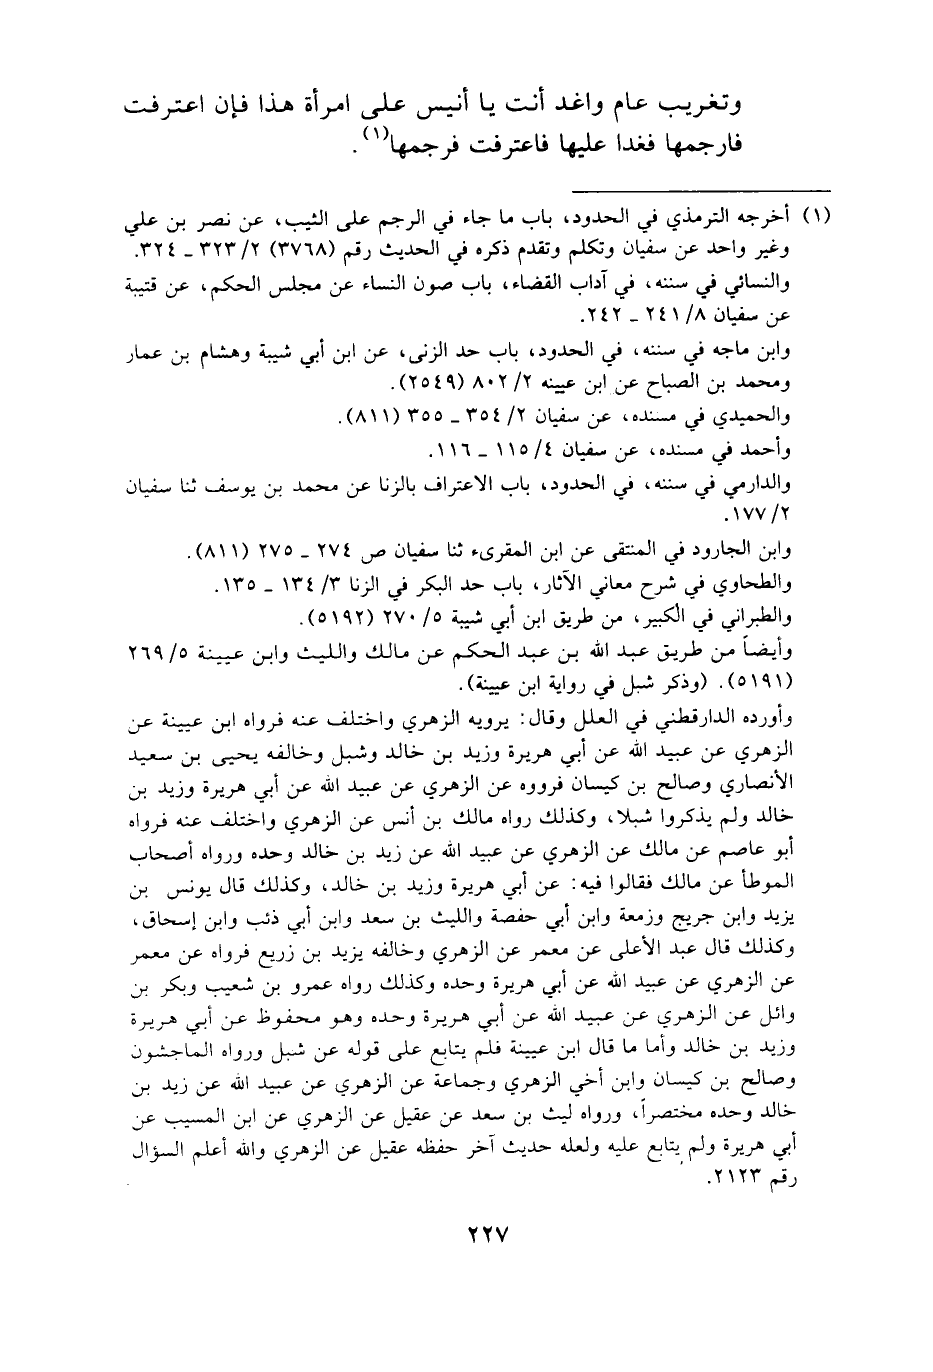 وتغريب عام واغد أنت يا أنيس على امرأة هذا فإن اعترفت
فارجمها فغدا عليها فاعترفت فرجمها(١).
(١) أخرجه الترمذي في الحدود، باب ما جاء في الرجم على الثيب، عن نصر بن علي
وغير واحد عن سفيان وتكلم وتقدم ذكره في الحديث رقم (٣٧٦٨) ٢/ ٣٢٣ ـ ٣٢٤.
والنسائي في سننه، في آداب القضاء، باب صون النساء عن مجلس الحكم، عن قتيبة
عن سفيان ٨/ ٢٤١ ـ ٢٤٢.
وابن ماجه في سننه، في الحدود، باب حد الزنى، عن ابن أبي شيبة وهشام بن عمار
ومحمد بن الصباح عن ابن عيينه ٢/ ٨٠٢ (٢٥٤٩).
والحميدي في مسنده، عن سفيان ٢/ ٣٥٤ ـ ٣٥٥ (٨١١).
وأحمد في مسنده، عن سفيان ٤/ ١١٥ ـ ١١٦.
والدارمي في سننه، في الحدود، باب الاعتراف بالزنا عن محمد بن يوسف ثنا سفيان
٢/ ١٧٧.
وابن الجارود في المنتقى عن ابن المقرىء ثنا سفيان ص ٢٧٤ ـ ٢٧٥ (٨١١).
والطحاوي في شرح معاني الآثار، باب حد البكر في الزنا ٣/ ١٣٤ ـ ١٣٥.
والطبراني في الكبير، من طريق ابن أبي شيبة ٥/ ٢٧٠ (٥١٩٢).
وأيضاً من طريق عبد الله بن عبد الحكم عن مالك والليث وابن عيينة ٥/ ٢٦٩
(٥١٩١). (وذكر شبل في رواية ابن عيينة).
وأورده الدارقطني في العلل وقال: يرويه الزهري واختلف عنه فرواه ابن عيينة عن
الزهري عن عبيد الله عن أبي هريرة وزيد بن خالد وشبل وخالفه يحيى بن سعيد
الأنصاري وصالح بن كيسان فرووه عن الزهري عن عبيد الله عن أبي هريرة وزيد بن
خالد ولم يذكروا شبلا، وكذلك رواه مالك بن أنس عن الزهري واختلف عنه فرواه
أبو عاصم عن مالك عن الزهري عن عبيد الله عن زيد بن خالد وحده ورواه أصحاب
الموطأ عن مالك فقالوا فيه: عن أبي هريرة وزيد بن خالد، وكذلك قال يونس بن
يزيد وابن جريج وزمعة وابن أبي حفصة والليث بن سعد وابن أبي ذئب وابن إسحاق،
وكذلك قال عبد الأعلى عن معمر عن الزهري وخالفه يزيد بن زريع فرواه عن معمر
عن الزهري عن عبيد الله عن أبي هريرة وحده وكذلك رواه عمرو بن شعيب وبكر بن
وائل عن الزهري عن عبيد الله عن أبي هريرة وحده وهو محفوظ عن أبي هريرة
وزيد بن خالد وأما ما قال ابن عيينة فلم يتابع على قوله عن شبل ورواه الماجشون
وصالح بن كيسان وابن أخي الزهري وجماعة عن الزهري عن عبيد الله عن زيد بن
خالد وحده مختصراً، ورواه ليث بن سعد عن عقيل عن الزهري عن ابن المسيب عن
أبي هريرة ولم يتابع عليه ولعله حديث آخر حفظه عقيل عن الزهري والله أعلم السؤال
رقم ٢١٢٣.
٢٢٧